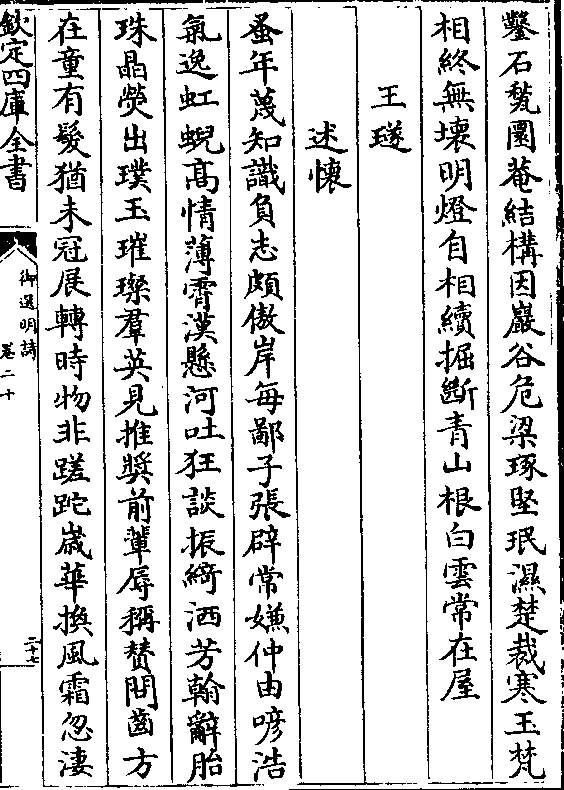 鑿石甃圜菴結構因巖谷危梁琢堅珉濕楚裁寒玉梵
相終無壞明燈自相續掘斷青山根白雲常在屋
王璲
述懷
蚤年蔑知識負志頗傲岸每鄙子張辟常嫌仲由喭浩
氣逸虹蜺高情薄霄漢懸河吐狂談振綺洒芳翰辭胎
珠晶熒出璞玉璀璨羣英見推奬前輩辱稱賛問齒方
在童有髮猶未冠展轉時物非蹉跎嵗華換風霜忽淒
欽定四庫全書
御選明詩
卷二十
二十七